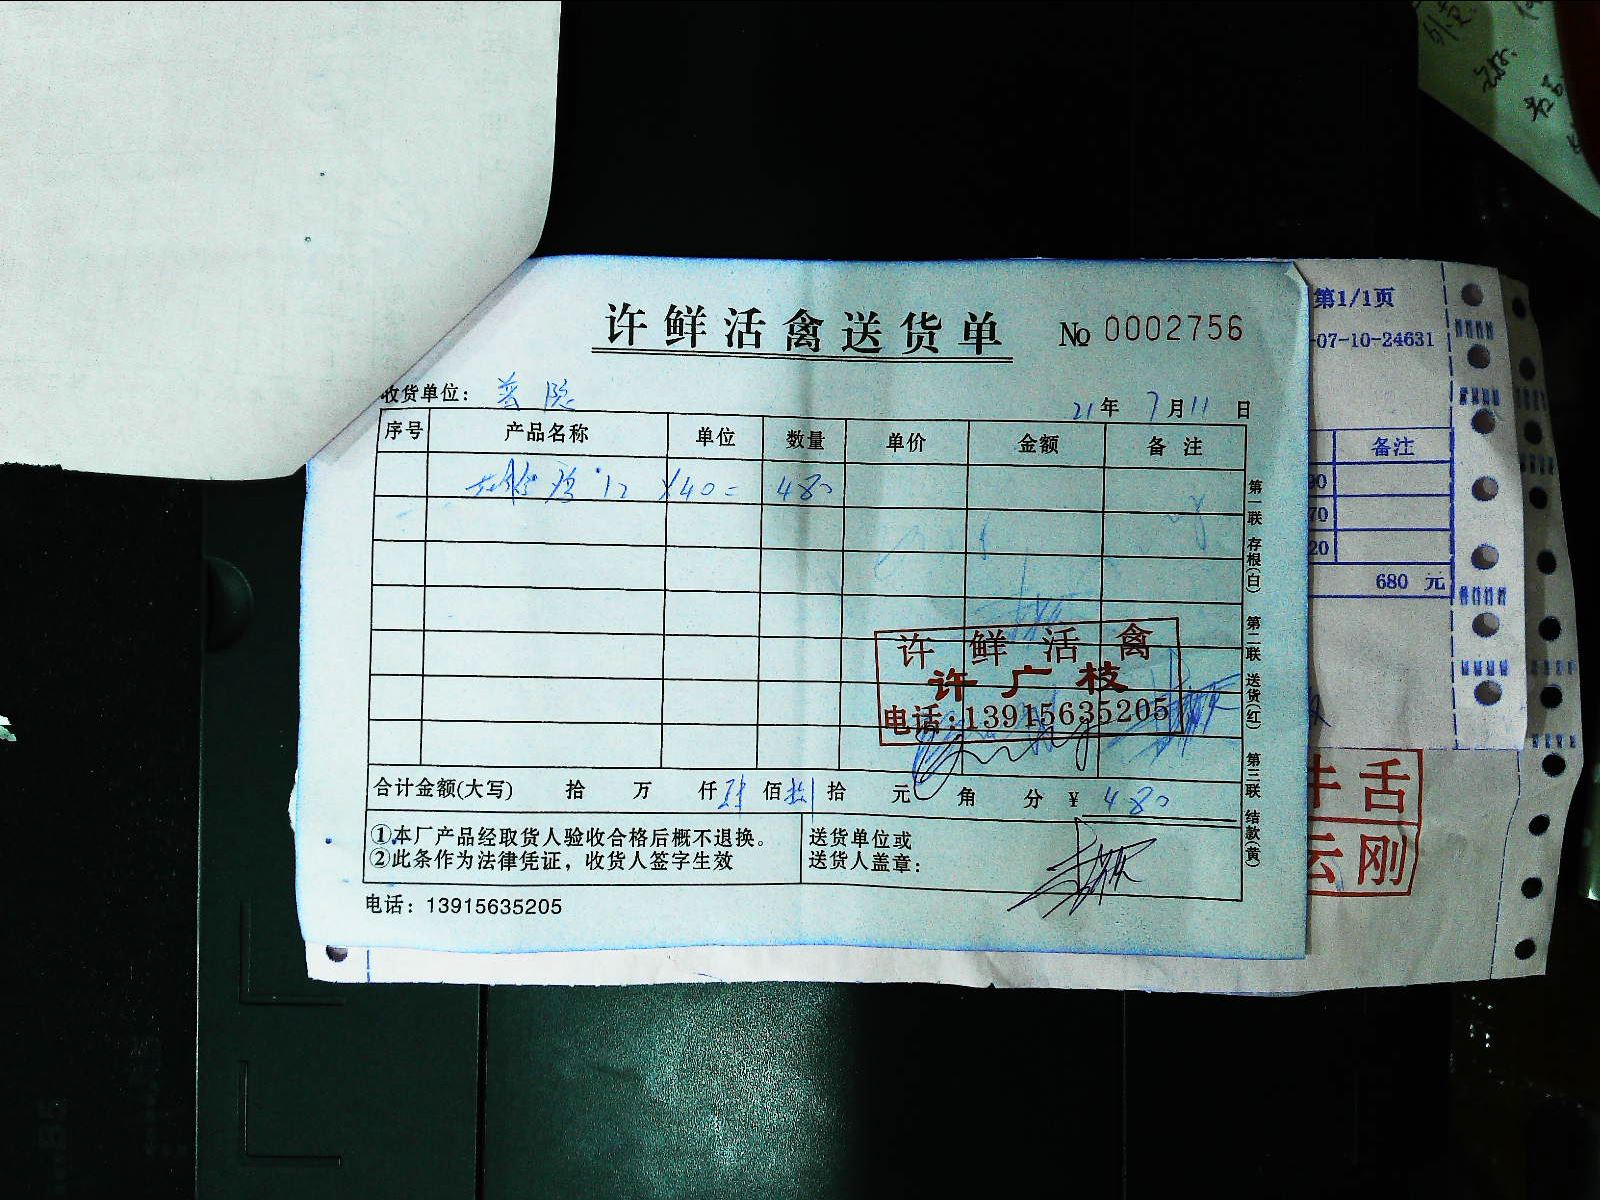 许鲜活禽送货单 № 0002756
收货单位：
21年 7月11日
序号 产品名称 单位 数量 单价 金额 备注
12 ×40= 480
许鲜活禽
许广枝
电话:13915635205
合计金额(大写) 拾 万 仟肆佰捌拾 元 角 分 ¥ 480
①本厂产品经取货人验收合格后概不退换。
②此条作为法律凭证，收货人签字生效
送货单位或
送货人盖章：
电话：13915635205
第一联 存根(白) 第二联 送货(红) 第三联 结款(黄)
第1/1页
-07-10-24631
备注
90
70
20
680 元
牛舌
云刚